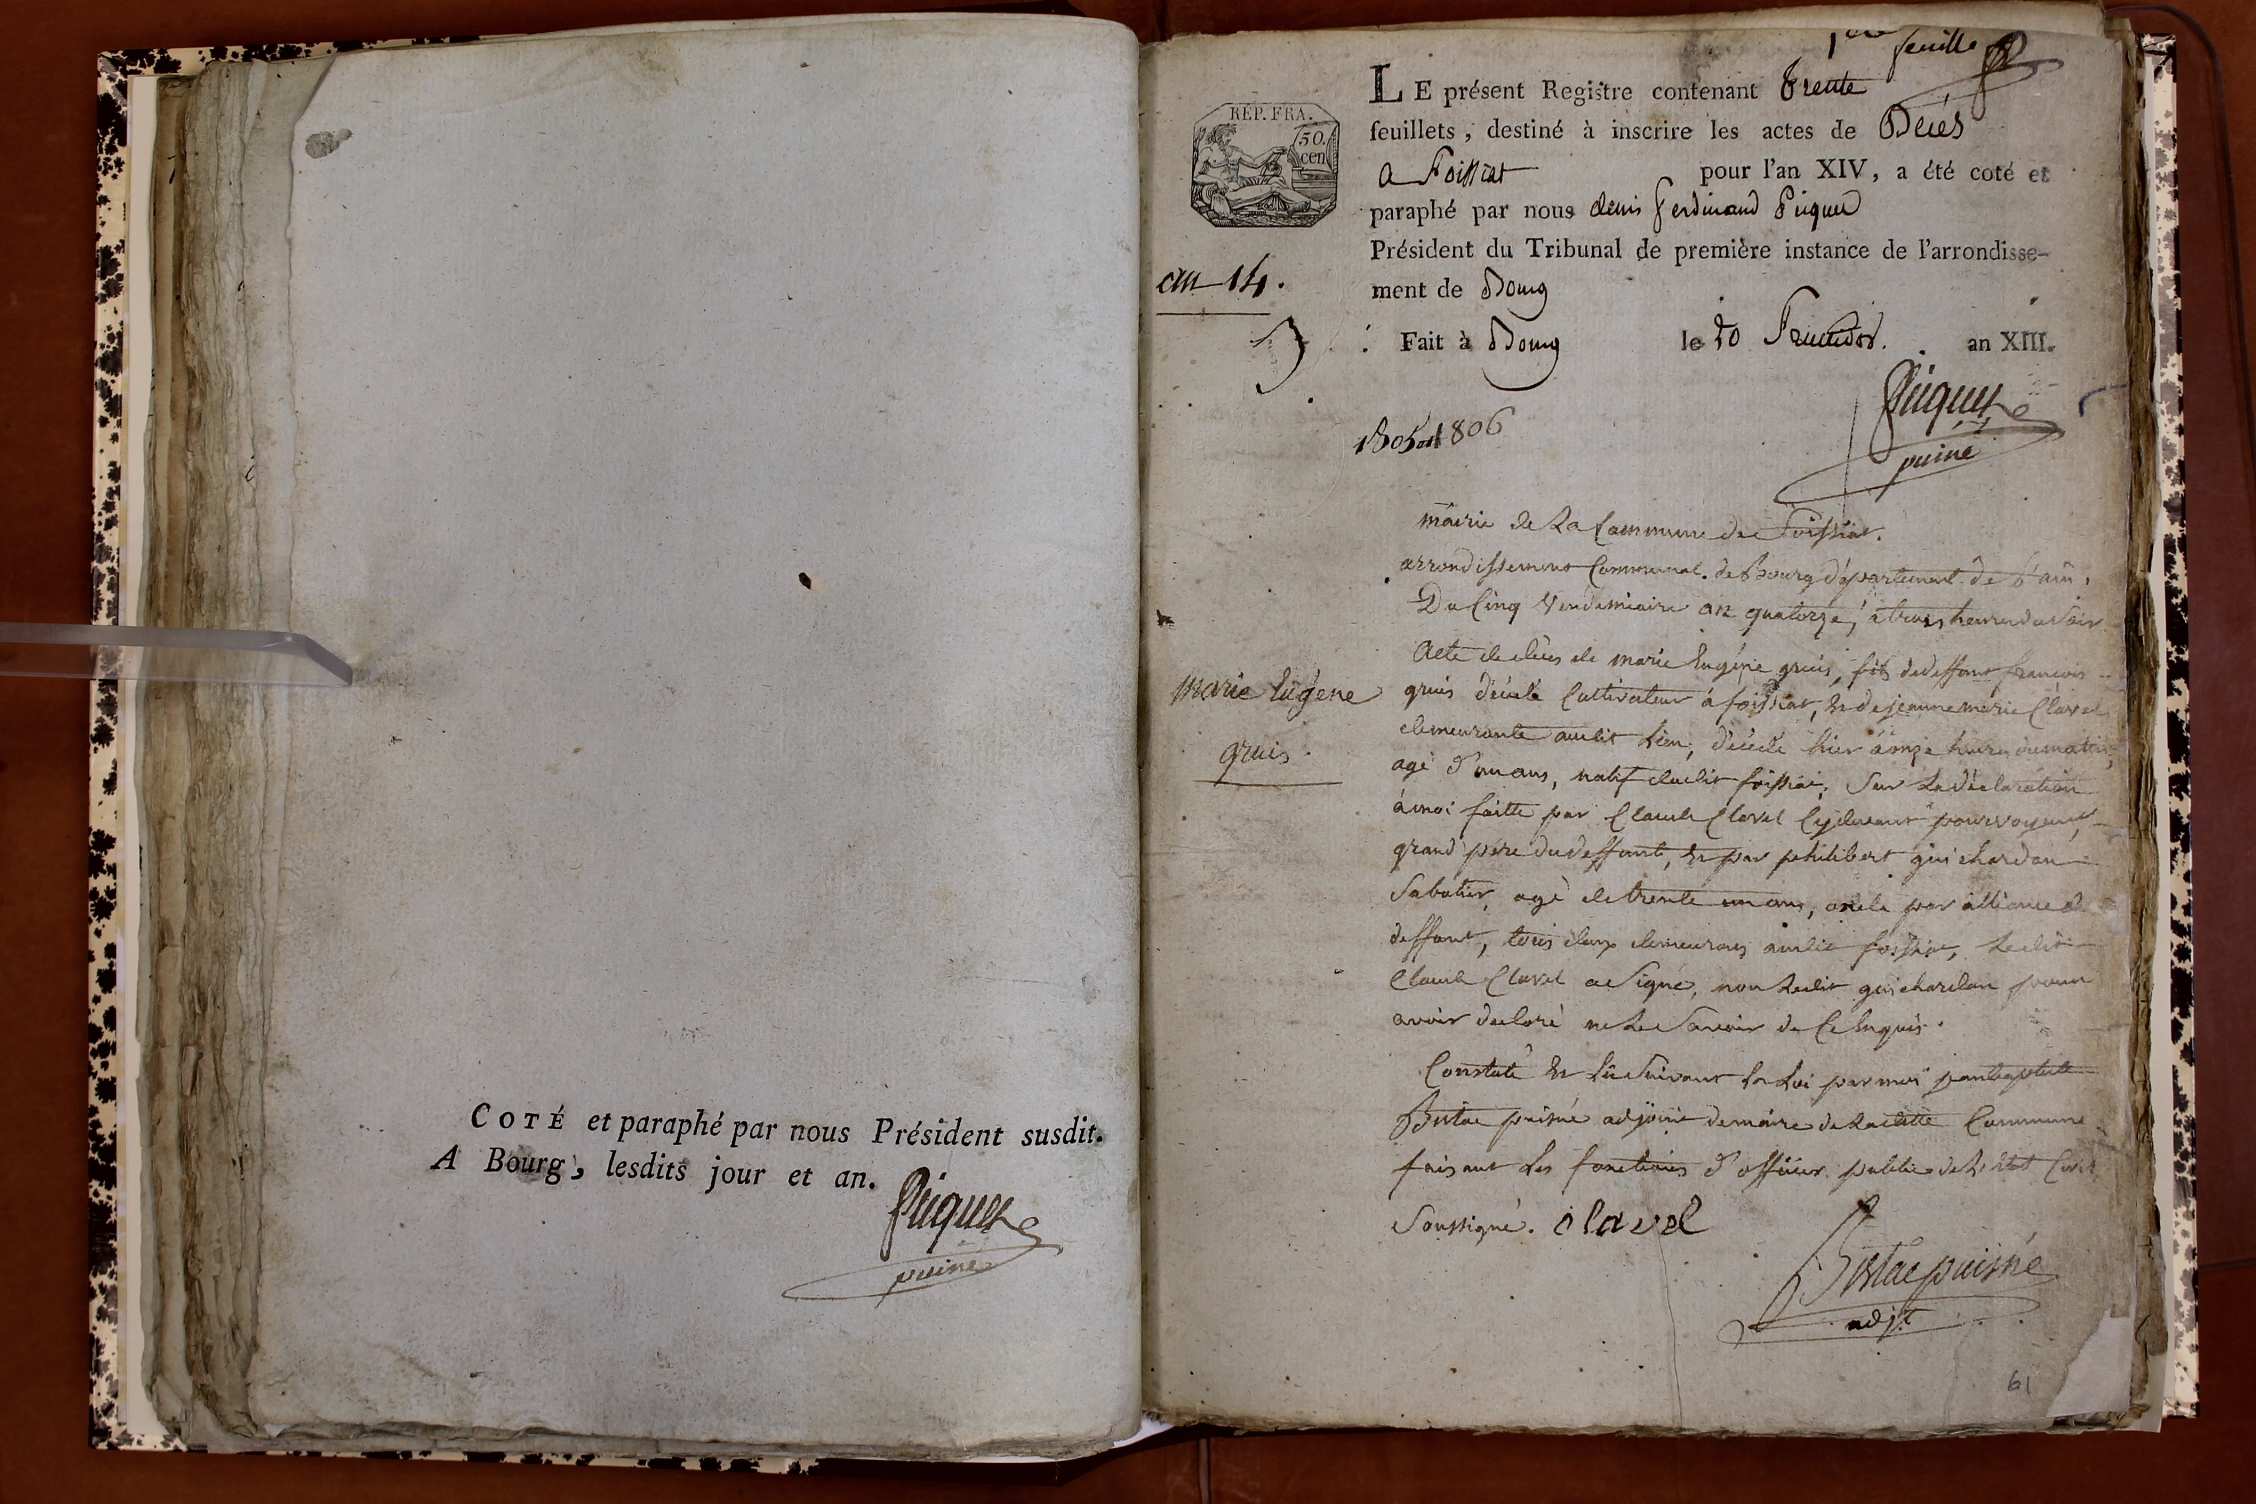 COTÉ et paraphé par nous Président susdit.
A Bourg, lesdits jour et an.
Picquet
puiné
1ere feuille
RÉP. FRA.
50
cen
LE présent Registre contenant trente
feuillets, destiné à inscrire les actes de Décès
a Foissiat pour l'an XIV, a été coté et
paraphé par nous denis ferdinand Picquet
Président du Tribunal de première instance de l'arrondisse-
ment de Bourg
Fait à Bourg le 20 Fructidor. an XIII.
an 14.
D
Picquet
puiné
1805 et 1806
mairie de La Commune de Foissiat.
arrondissement Communal de Bourg département de l'ain.
Du Cinq Vendemiaire an quatorze, à trois heures du Soir
marie Eugéne
gruis.
Acte de décès de marie Eugéne gruis, fils de deffunt francois
gruis décédé Cultivateur à foissiat, Et de jeanne marie Clavel
demeurante audit Lieu, décédé hier à onze heures du matin,
agé d'un ans, natif dudit foissiat, Sur La déclaration
à moi faitte par Claude Clavel
grand père du deffunt, Et par philibert guichardan
Sabotier, agé de trente un ans, oncle par alliance du
deffunt, tous deux demeurans audit foissiat, Ledit
Claude Clavel a Signé, non Ledit guichardan pour
avoir declaré ne Le Savoir de Ce Enquis.
Constaté Et Lu Suivant La Loi par moi
puisné adjoint de maire de Laditte Commune
faisant Les fonctions d'officier public de L'état Civil
Soussigné. clavel
puisné
adjt
61